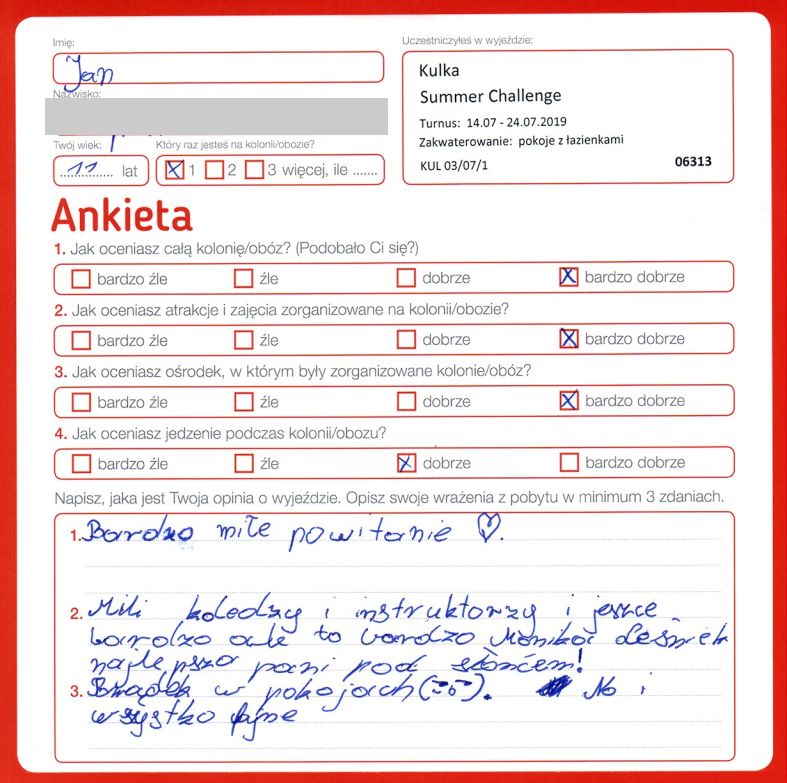 Imię:
Uczestniczyłeś w wyjeździe:
Jan
Kulka
Summer Challenge
Nazwisko:
Turnus: 14.07 - 24.07.2019
Zakwaterowanie: pokoje z łazienkami
KUL 03/07/1
06313
Twój wiek:
Który raz jesteś na kolonii/obozie?
11 lat
X 1 2 3 więcej, ile .......
Ankieta
1. Jak oceniasz całą kolonię/obóz? (Podobało Ci się?)
bardzo źle źle dobrze X bardzo dobrze
2. Jak oceniasz atrakcje i zajęcia zorganizowane na kolonii/obozie?
bardzo źle źle dobrze X bardzo dobrze
3. Jak oceniasz ośrodek, w którym były zorganizowane kolonie/obóz?
bardzo źle źle dobrze X bardzo dobrze
4. Jak oceniasz jedzenie podczas kolonii/obozu?
bardzo źle źle X dobrze bardzo dobrze
Napisz, jaka jest Twoja opinia o wyjeździe. Opisz swoje wrażenia z pobytu w minimum 3 zdaniach.
1. Bardzo miłe powitanie ♡.
2. Mili koledzy i instruktorzy i jeszce
bardzo ale to bardzo Monika
najlepsza pani pod słońcem!
3. w pokojach (-o-). No i
wszystko fajne